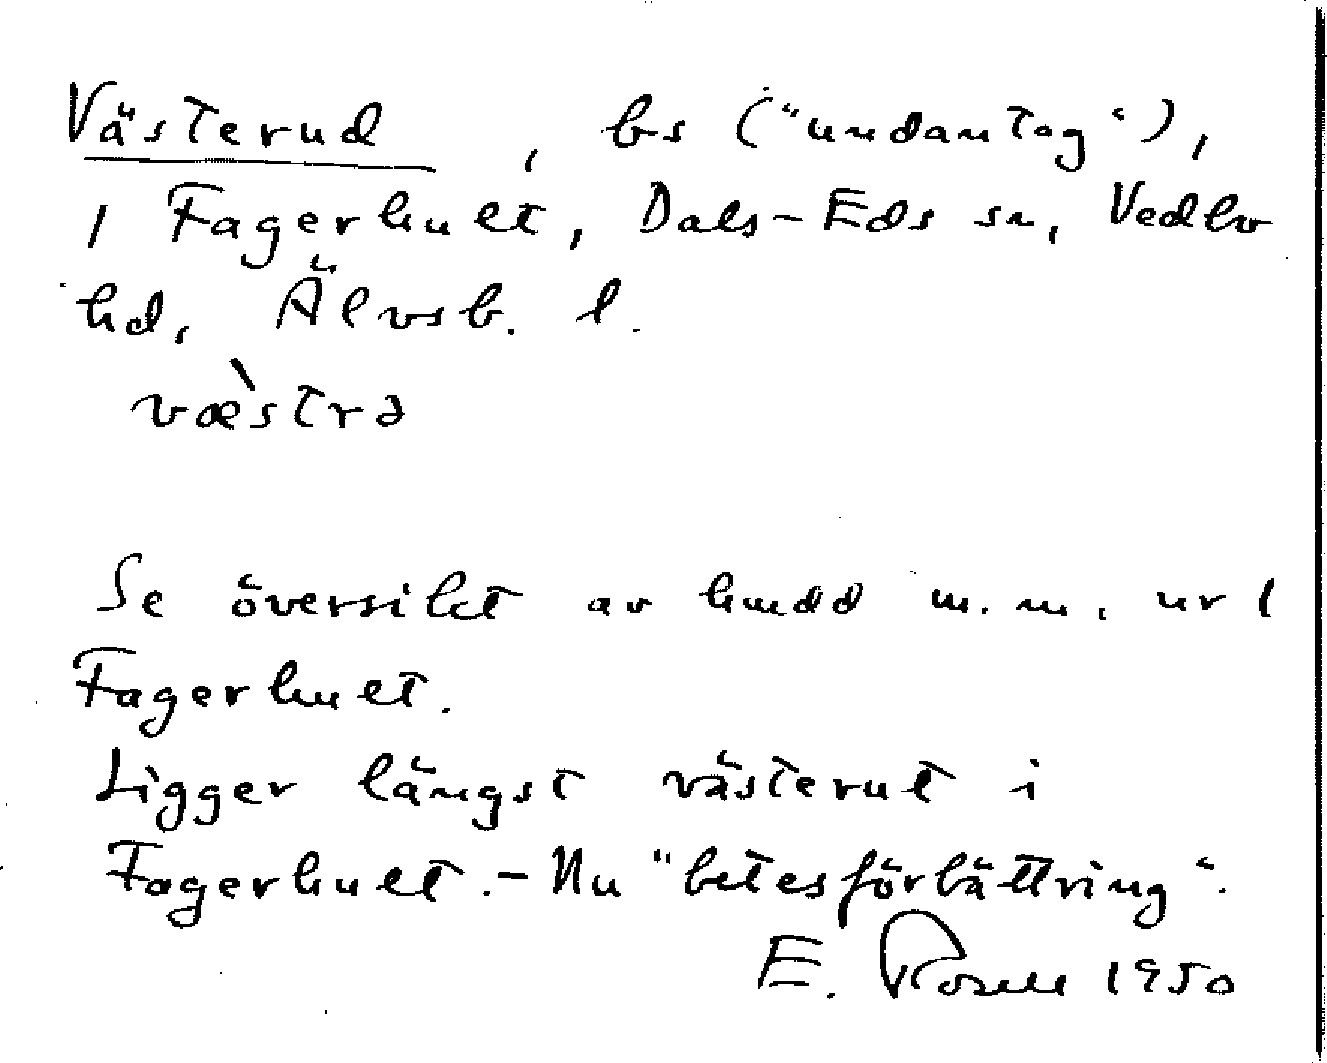 Västerud, bs ("undantag"),
1 Fagerhult, Dals-Eds sn, Vedbo
hd, Älvsb. l.
væ̀strə
Se översikt av hmdd m.m. ur 1
Fagerhult.
Ligger längst västerut i
Fagerhult. - Nu "betesförbättring".
E. Rosell 1950